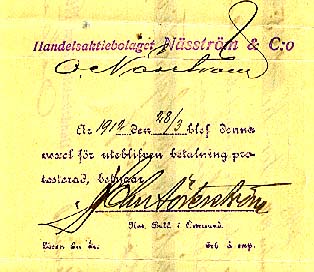 Handelsaktiebolaget Näsström & C:o
O. Näsström
År 1912 den 28/3 blef denna
vexel för uteblifven betalning pro-
testerad, betygar
John Söderström
Not. Publ. i Östersund.